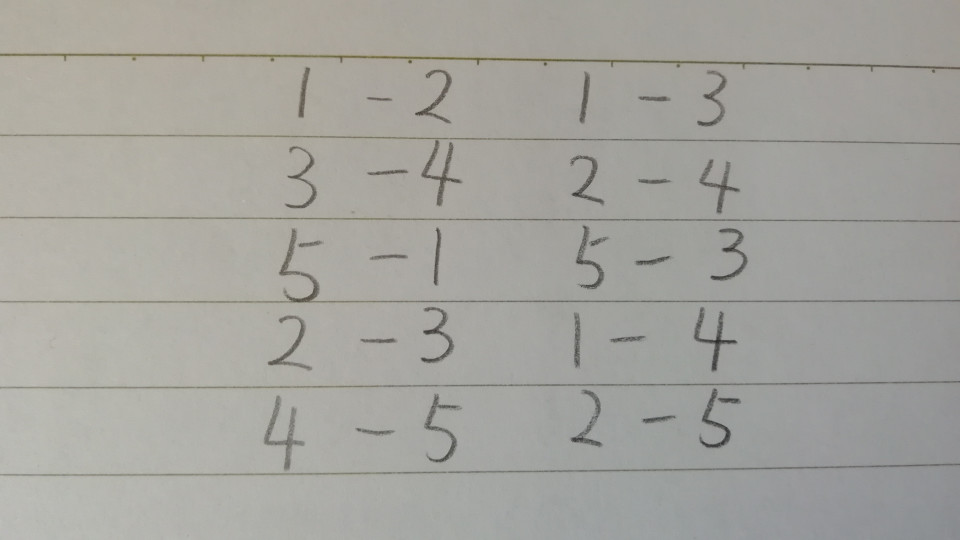 1 - 2 1 - 3
3 - 4 2 - 4
5 - 1 5 - 3
2 - 3 1 - 4
4 - 5 2 - 5